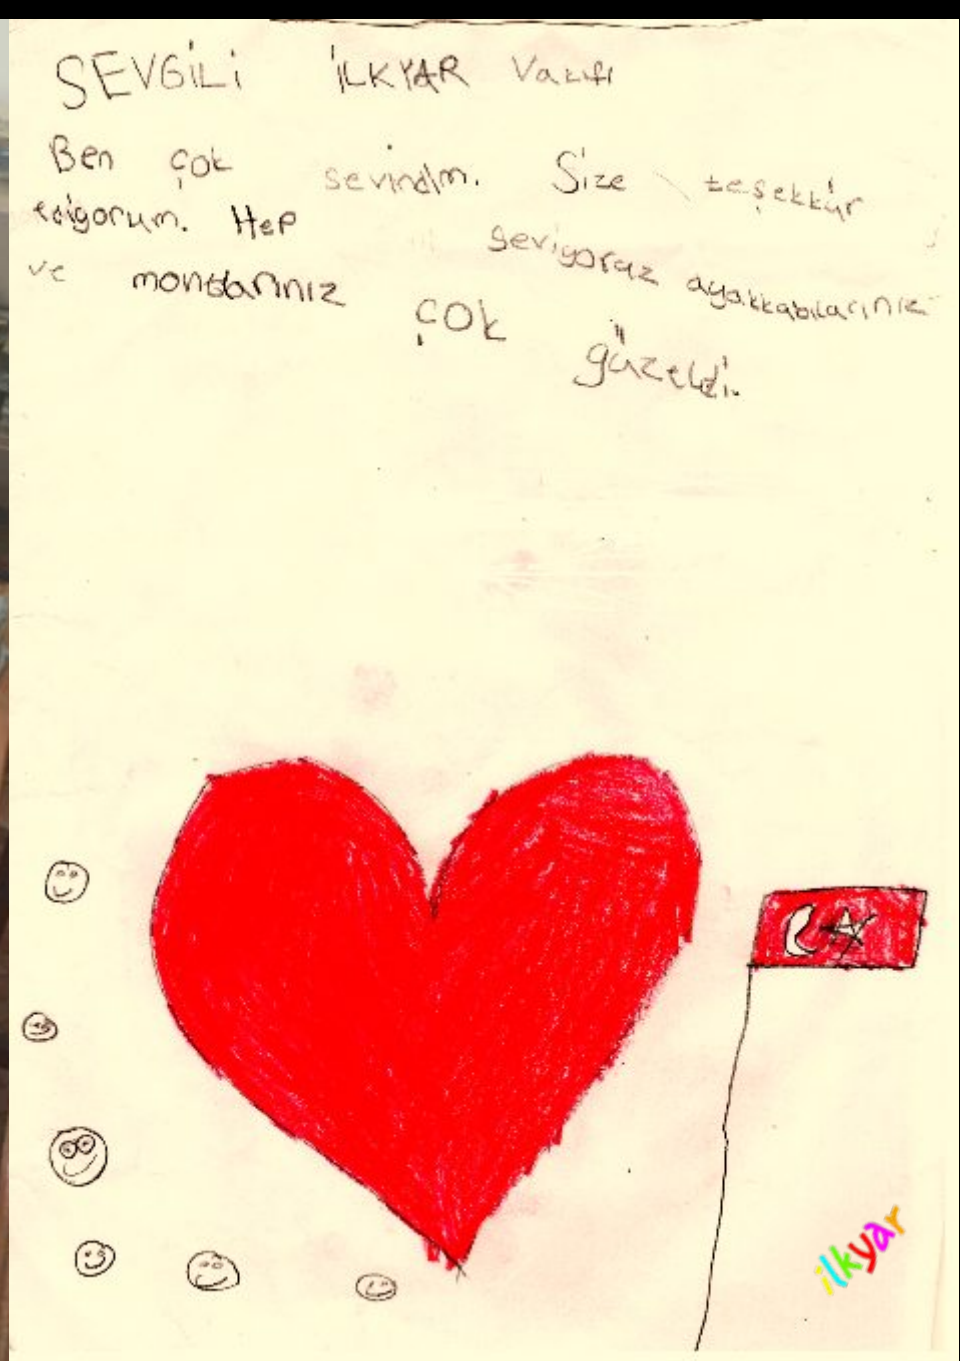 SEVGİLİ İLKYAR Vakıfı
Ben çok sevindim. Size teşekkür
ediyorum. Hep seviyoruz ayakkabılarınız
ve montlarınız çok güzeldi.
ilkyar